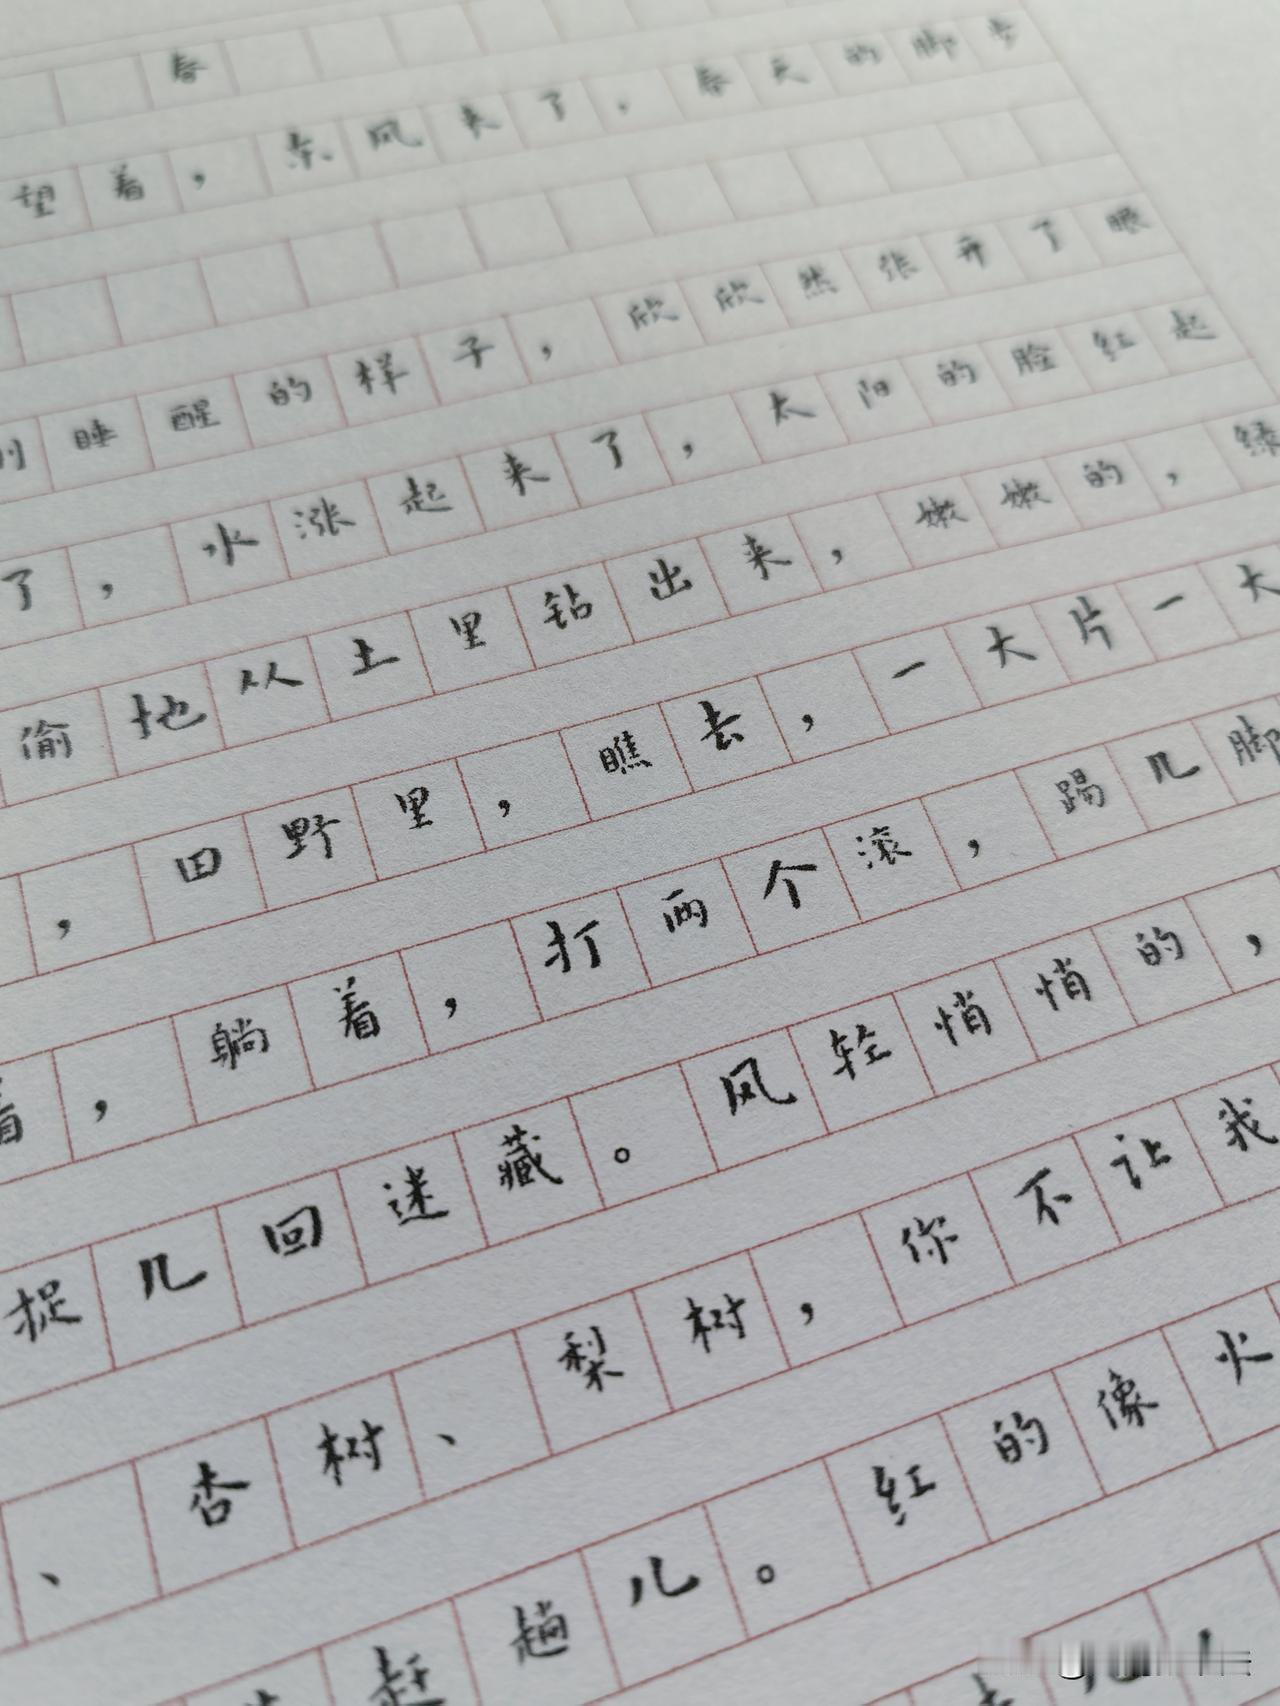 春
望着，东风来了，春天的脚步
睡醒的样子，欣欣然张开了眼
了，水涨起来了，太阳的脸红起
偷地从土里钻出来，嫩嫩的，绿
，田野里，瞧去，一大片一大
着，躺着，打两个滚，踢几脚
捉几回迷藏。风轻悄悄的，
、杏树、梨树，你不让我
赶趟儿。红的像火